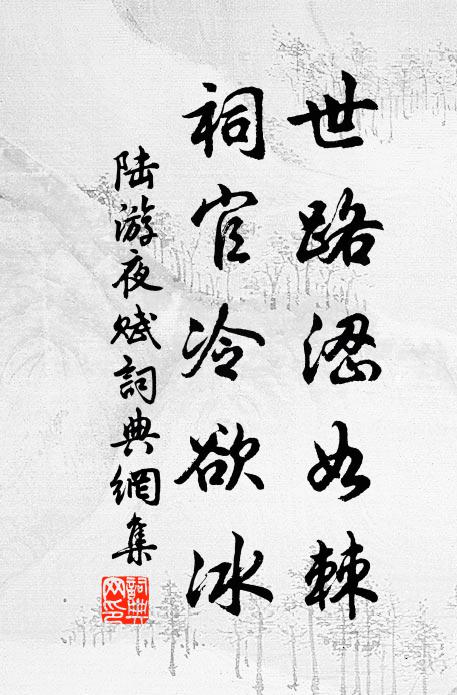 世路澀如棘
祠官冷欲冰
陸游夜賦詞典網集
詞典
网印